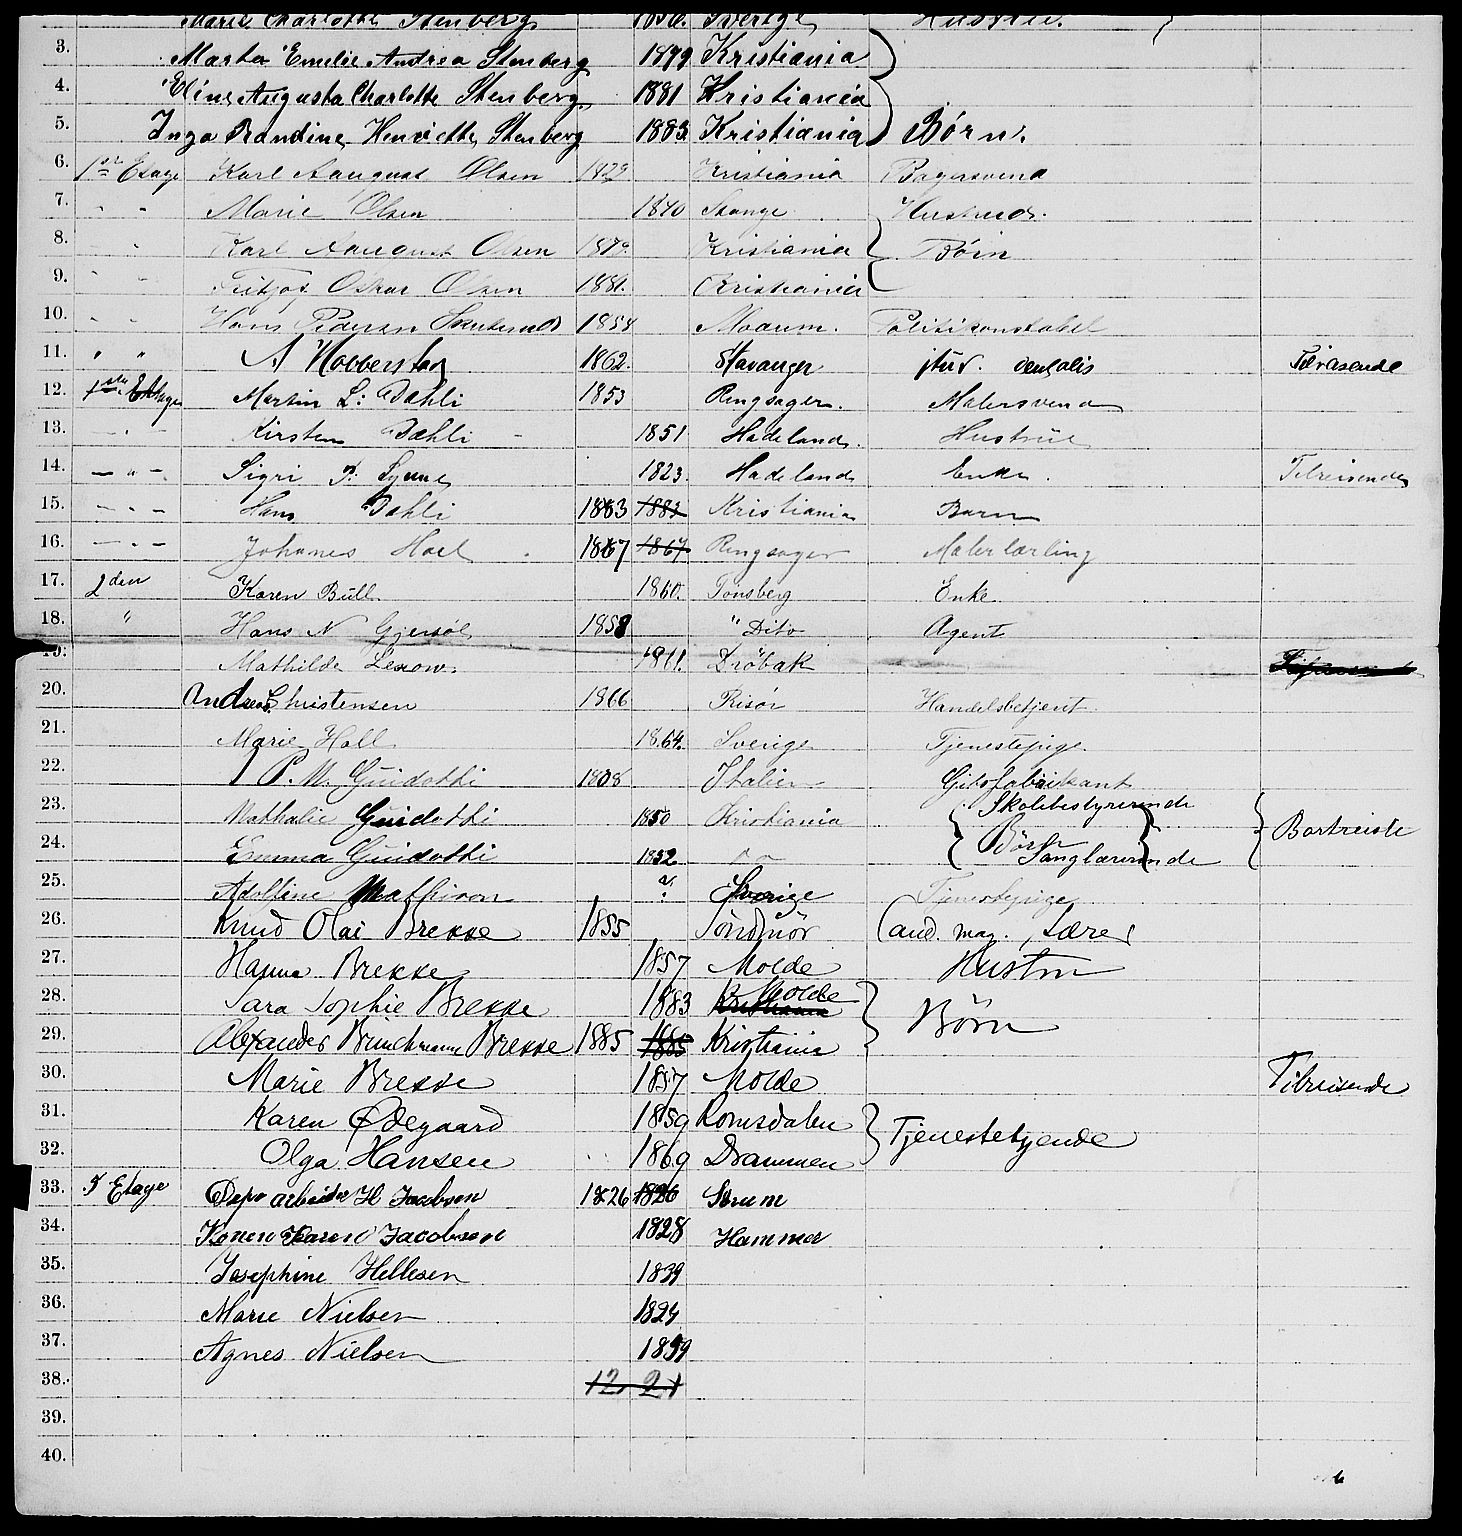 Marie Charlotte Stenberg 1856. Sverige Hustru.
3. Marta Emelie Andrea Stenberg 1879 Kristiania
4. Eline Augusta Charlotte Stenberg 1881 Kristiania
5. Inga Randine Henriette Stenberg 1883 Kristiania Børn.
6. 1ste Etage Karl Aaugust Olsen 1829 Kristiania Bagersvend
7. " " Marie Olsen 1840 Stange Hustrue.
8. " Karl Aaugust Olsen 187 Kristiania Børn
9. " " Oskar Olsen 1881. Kristiania
10. " " Hans Pedersen 1854 Moarum. Politikonstabel
11. " " A Hobberstad 1862. Stavanger stud. Tilreisende
12. 1ste Etage Martin L: Dæhli 1853 Ringsager. Malersvend
13. - " - Kirsten Dæhli - 1851 Hadeland. Hustrue
14. - " - Sigri P: 1823. Hadeland Enke. Tilreisende
15. - " - Hans Dæhli 1883 1883 Kristiania Barn
16. - " - Johanes Hoel 1867 1867 Ringsager Malerlærling
17. 2den Karen Bull. 1860. Tønsberg Enke
18. " Hans N 1858 " Dito Agent
19. Mathilde Lexow. 1861. Drøbak
20. Andreas Christensen 1866 Risør Handelsbetjent.
21. Marie Holl 1864. Sverige Tjenestepige.
22. P. M. Guidotti 1808 Italien Gibsfabrikant
23. Nathalie Guidotti 1850 Kristiania Skolebestyrerinde
Børn Bortreiste
24. Emma Guidotti 1852 " " Sanglærerinde
25. Adolfine Mathison ? Sverige Tjenestepige
26. Knud Olai Brekke 1855 Søndmør Cand. mag. Lærer
27. Hanna Brekke 1857 Molde Hustru
28. Sara Sophie Brekke 1883 Kristiania Molde
Børn
29. Alexander Brinchmann Brekke 1885 1885 Kristiania
30. Marie Brekke 1857 Molde Tilreisende
31. Karen Ødegaard 1859 Romsdalen
Tjenestetyende
32. Olga Hansen 1869 Drammen
33. 3 Etage arbeider H Jacobsen 1826 1826 Sørum
34. Konen Karen Jacobsen 1828 Hammer
35. Josephine Hellesen 1839
36. Marie Nielsen 1824
37. Agnes Nielsen 1859
38. 12 21
39.
40.